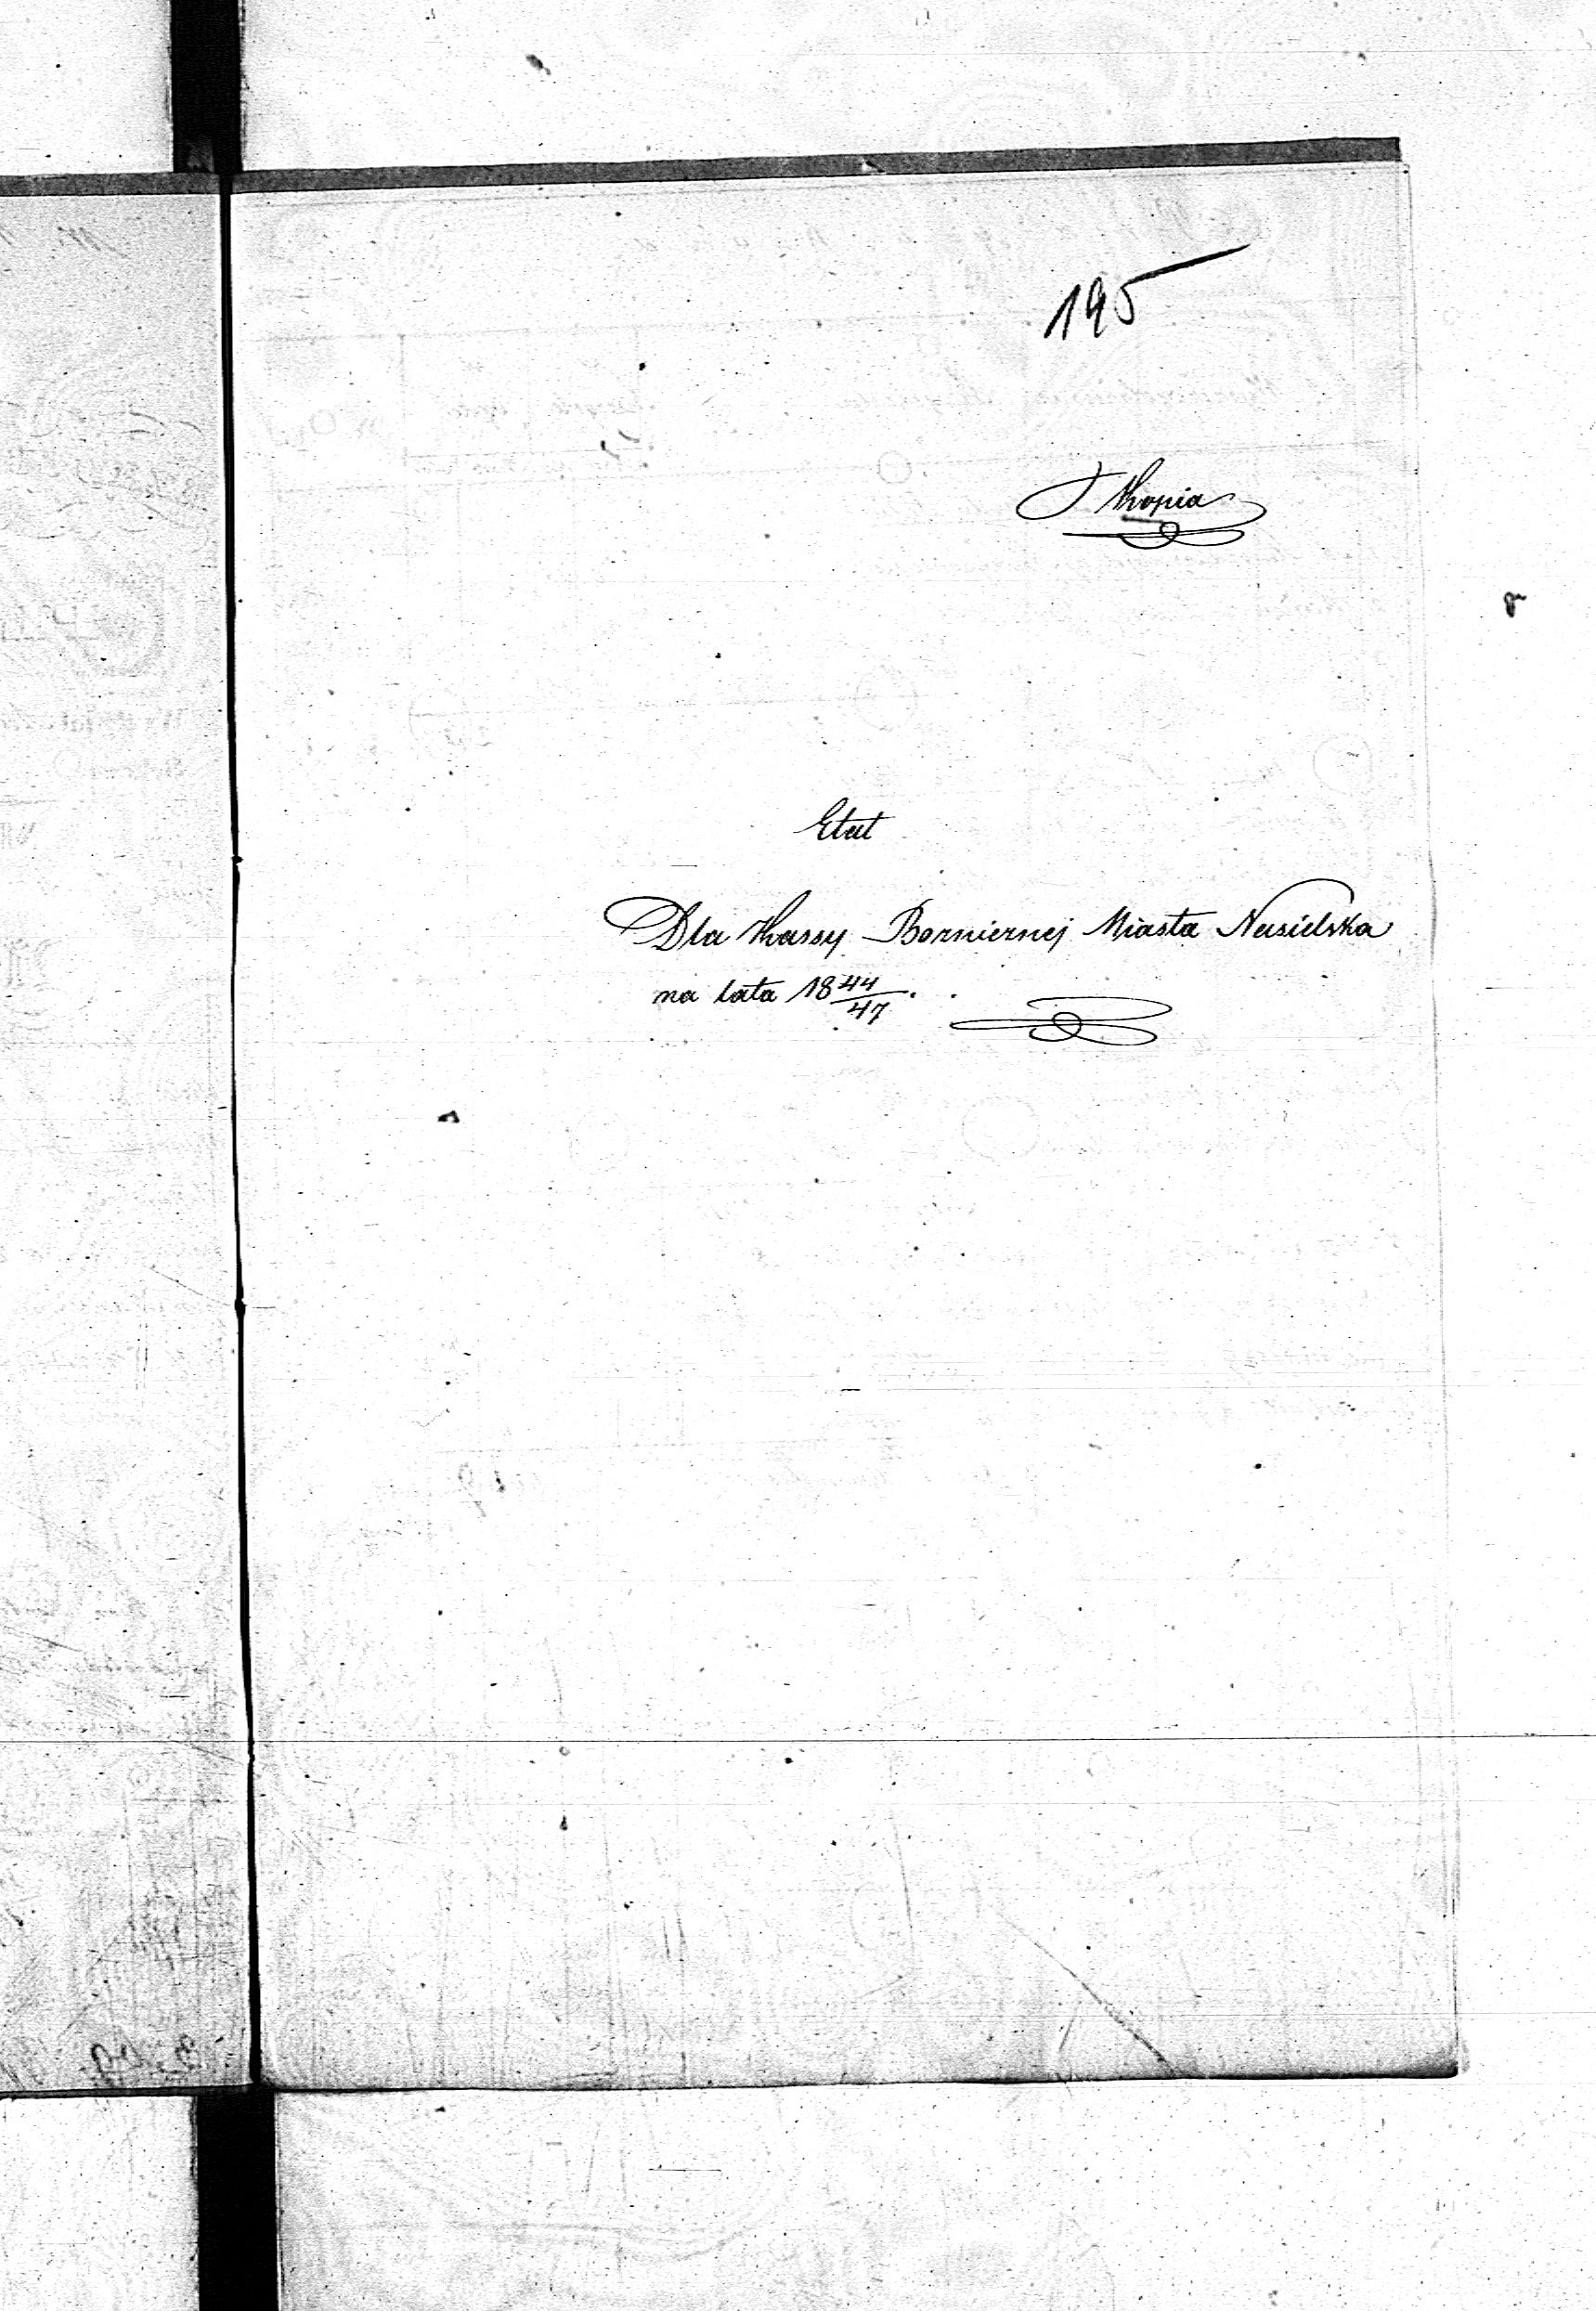 195
Kopia
Etat
Dla Kassy Bożnicznej Miasta Nasielska
na lata 18 44/47.